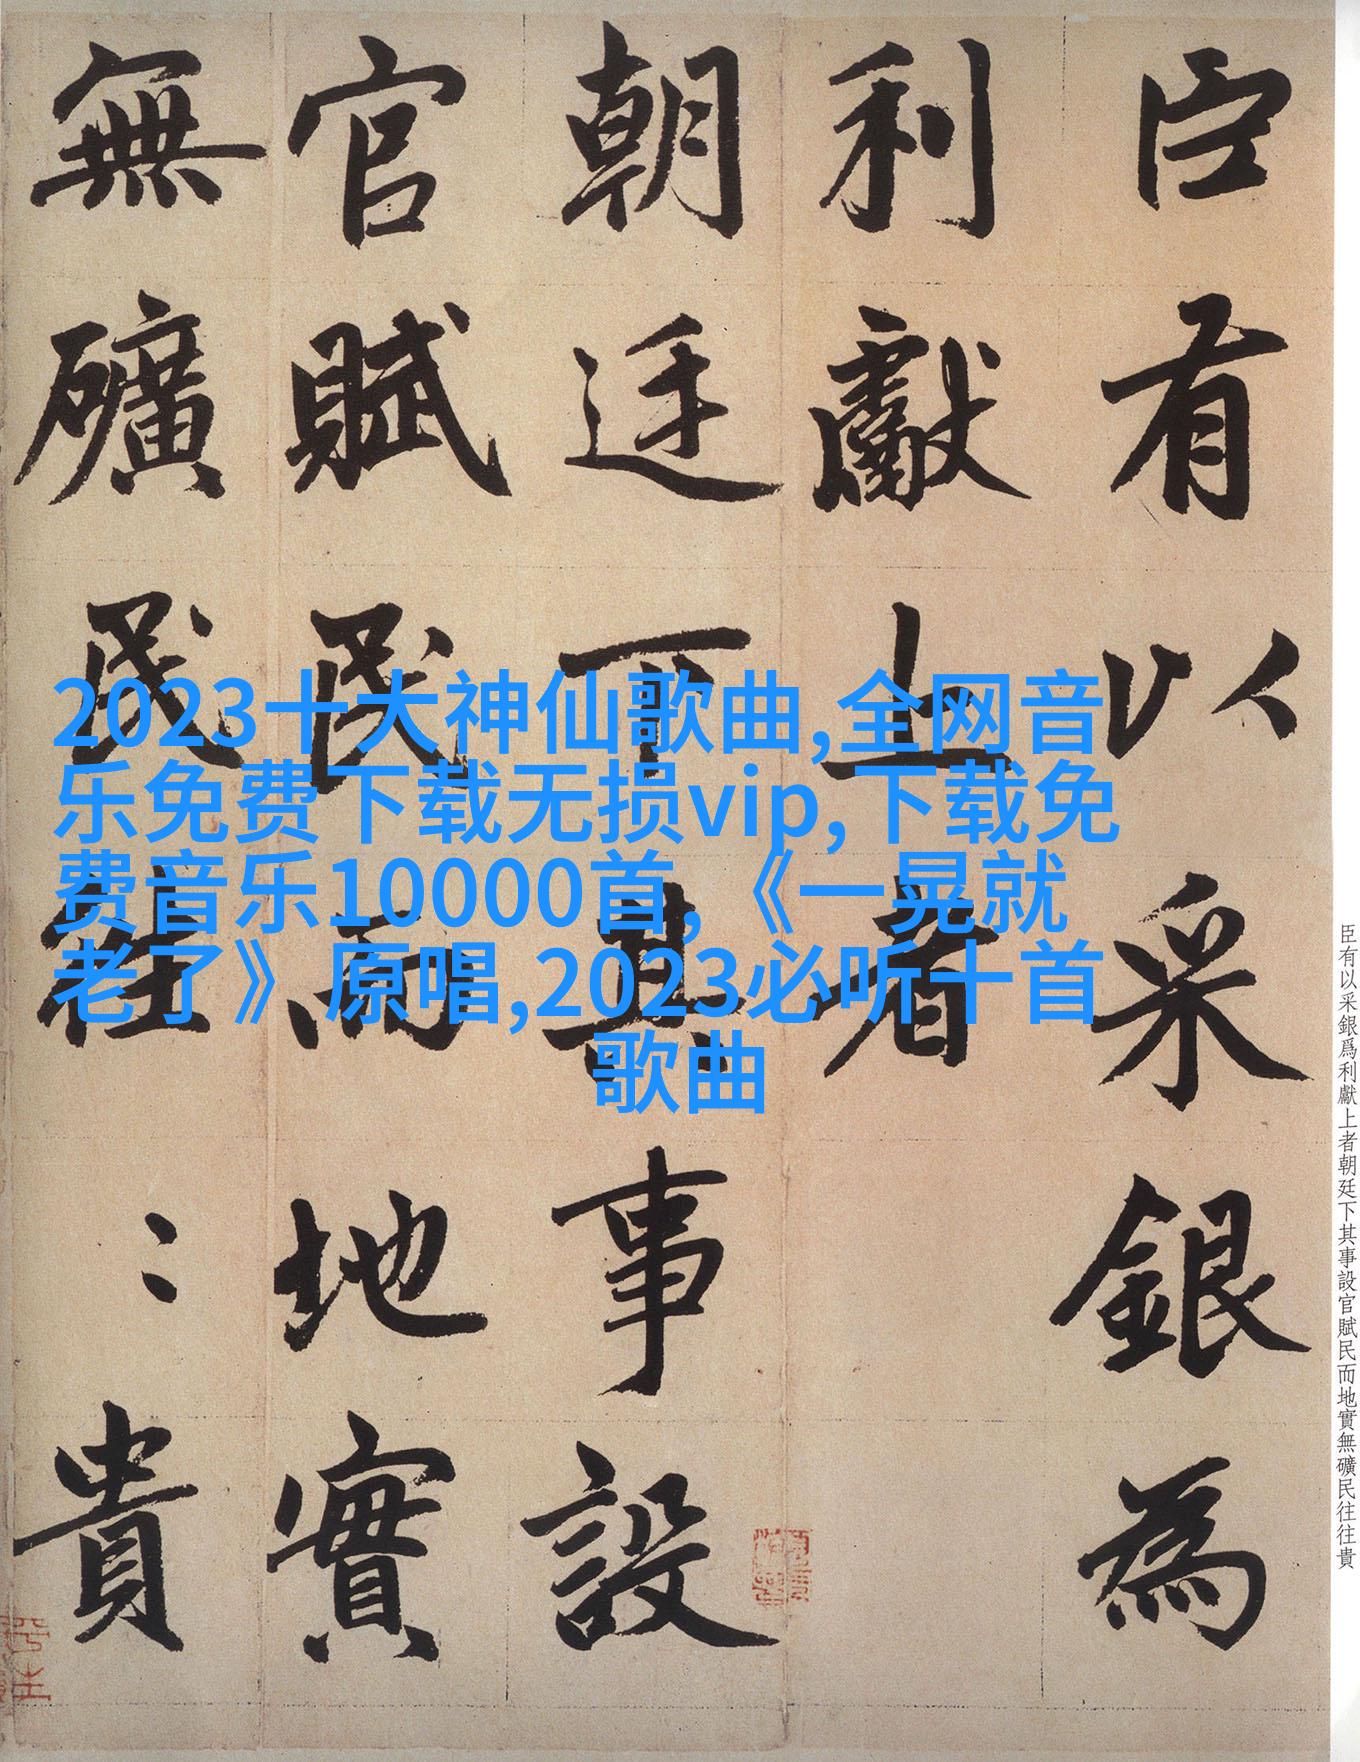 臣有以采銀為
利獻上者
朝廷下其事設
官賦民而地實
無礦民往〻貴
2023十大神仙歌曲,全网音
乐免费下载无损vip,下载免
费音乐10000首,《一晃就
老了》原唱,2023必听十首
歌曲
臣有以采銀爲利獻上者朝廷下其事設官賦民而地實無礦民往往貴